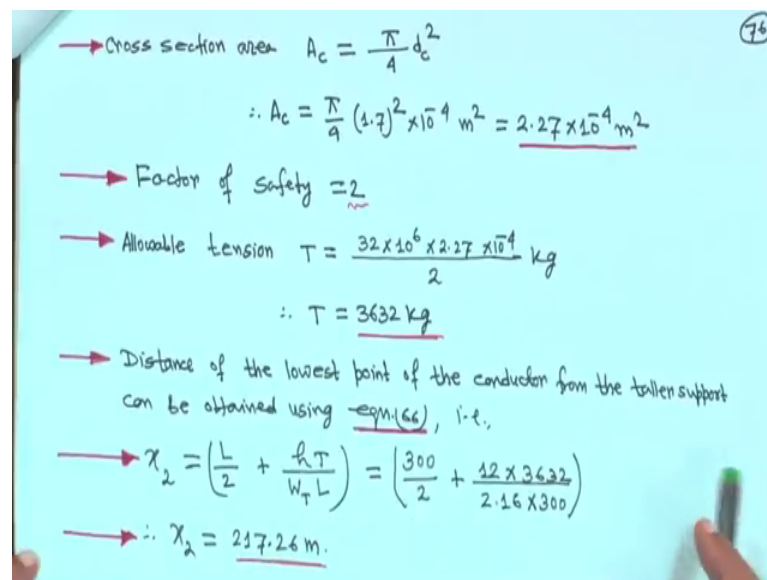 76
→ Cross section area A_c = π/4 d_c²
∴ A_c = π/4 (1.7)² × 10⁻⁴ m² = 2.27 × 10⁻⁴ m²
→ Factor of safety = 2
→ Allowable tension T = (32 × 10⁶ × 2.27 × 10⁻⁴)/2 kg
∴ T = 3632 kg
→ Distance of the lowest point of the conductor from the taller support
can be obtained using eqn.(66), i.e.,
→ x₂ = (L/2 + hT/(W_T L)) = (300/2 + (12 × 3632)/(2.16 × 300))
→ ∴ x₂ = 217.26 m.